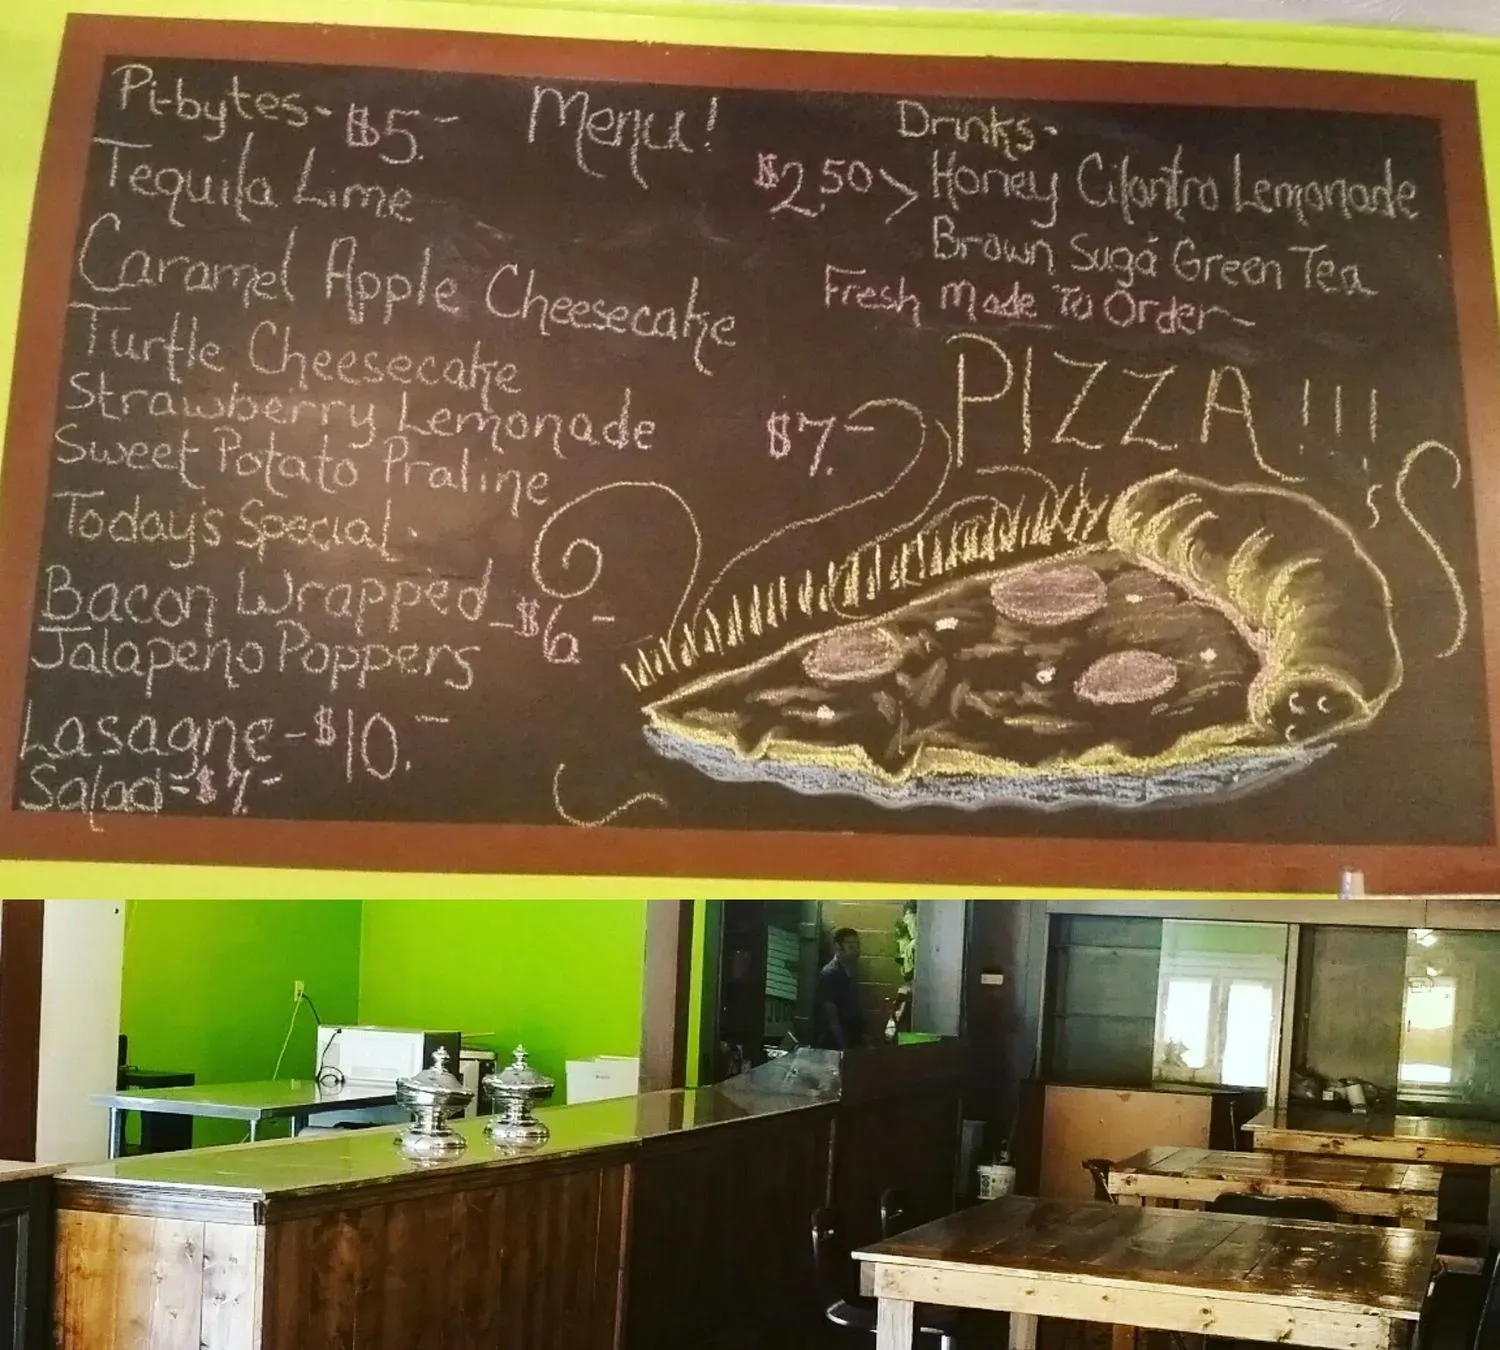 Pi-bytes- $5.-
Tequila Lime
Caramel Apple Cheesecake
Turtle Cheesecake
Strawberry Lemonade
Sweet Potato Praline
Today's Special.
Bacon Wrapped
Jalapeno Poppers -$6-
Lasagne-$10.-
Salad-$7.-
Menu!
Drinks-
$2.50> Honey Cilantro Lemonade
Brown Suga Green Tea
Fresh Made To Order~
PIZZA!!!
$7.-